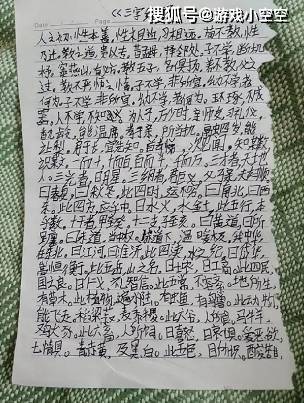 搜狐号@游戏小空空
《三字
Date
Page
人之初，性本善，性相近，习相远，苟不教，性
乃迁，教之道，贵以专，昔孟母，择邻处，子不学，断机
杼，窦燕山，有义方，教五子，名俱扬，养不教，父之
过，教不严，师之惰，子不学，非所宜，幼不学，老
何为，子不学，非所宜，幼不学，老何为。玉不琢，不成
器，人不学，不知义，为人子，方少时，亲师友，习礼仪，
香九龄，能温席，孝于亲，所当执，融四岁，能
让梨，弟于长，宜先知，首孝悌，次见闻，知某数，
识某文，一而十，十而百，百而千，千而万，三才者，天地
人，三光者，日月星，三纲者，君臣义，父子亲，夫妇顺
曰春夏，曰秋冬，此四时，运不穷，曰南北，曰西
东，此四方，应乎中，曰水火，木金土，此五行，本
乎数，十干者，甲至癸，十二支，子至亥，曰黄道，曰所
躔，曰赤道，当中权，赤道下，温暖极，我中华，
在东北，曰江河，曰淮济，此四渎，水之纪，曰岱华，
嵩恒衡，此五岳，山之名，曰士农，曰工商，此四民，
国之良，曰仁义，礼智信，此五常，不容紊，地所生，
有草木，此植物，遍水陆，有虫鱼，有鸟兽，此动物，
能飞走，稻粱菽，麦黍稷，此六谷，人所食，马牛羊，
鸡犬豕，此六畜，人所饲，曰喜怒，曰哀惧，爱恶欲，
七情具，青赤黄，及黑白，此五色，目所识，酸苦甘，